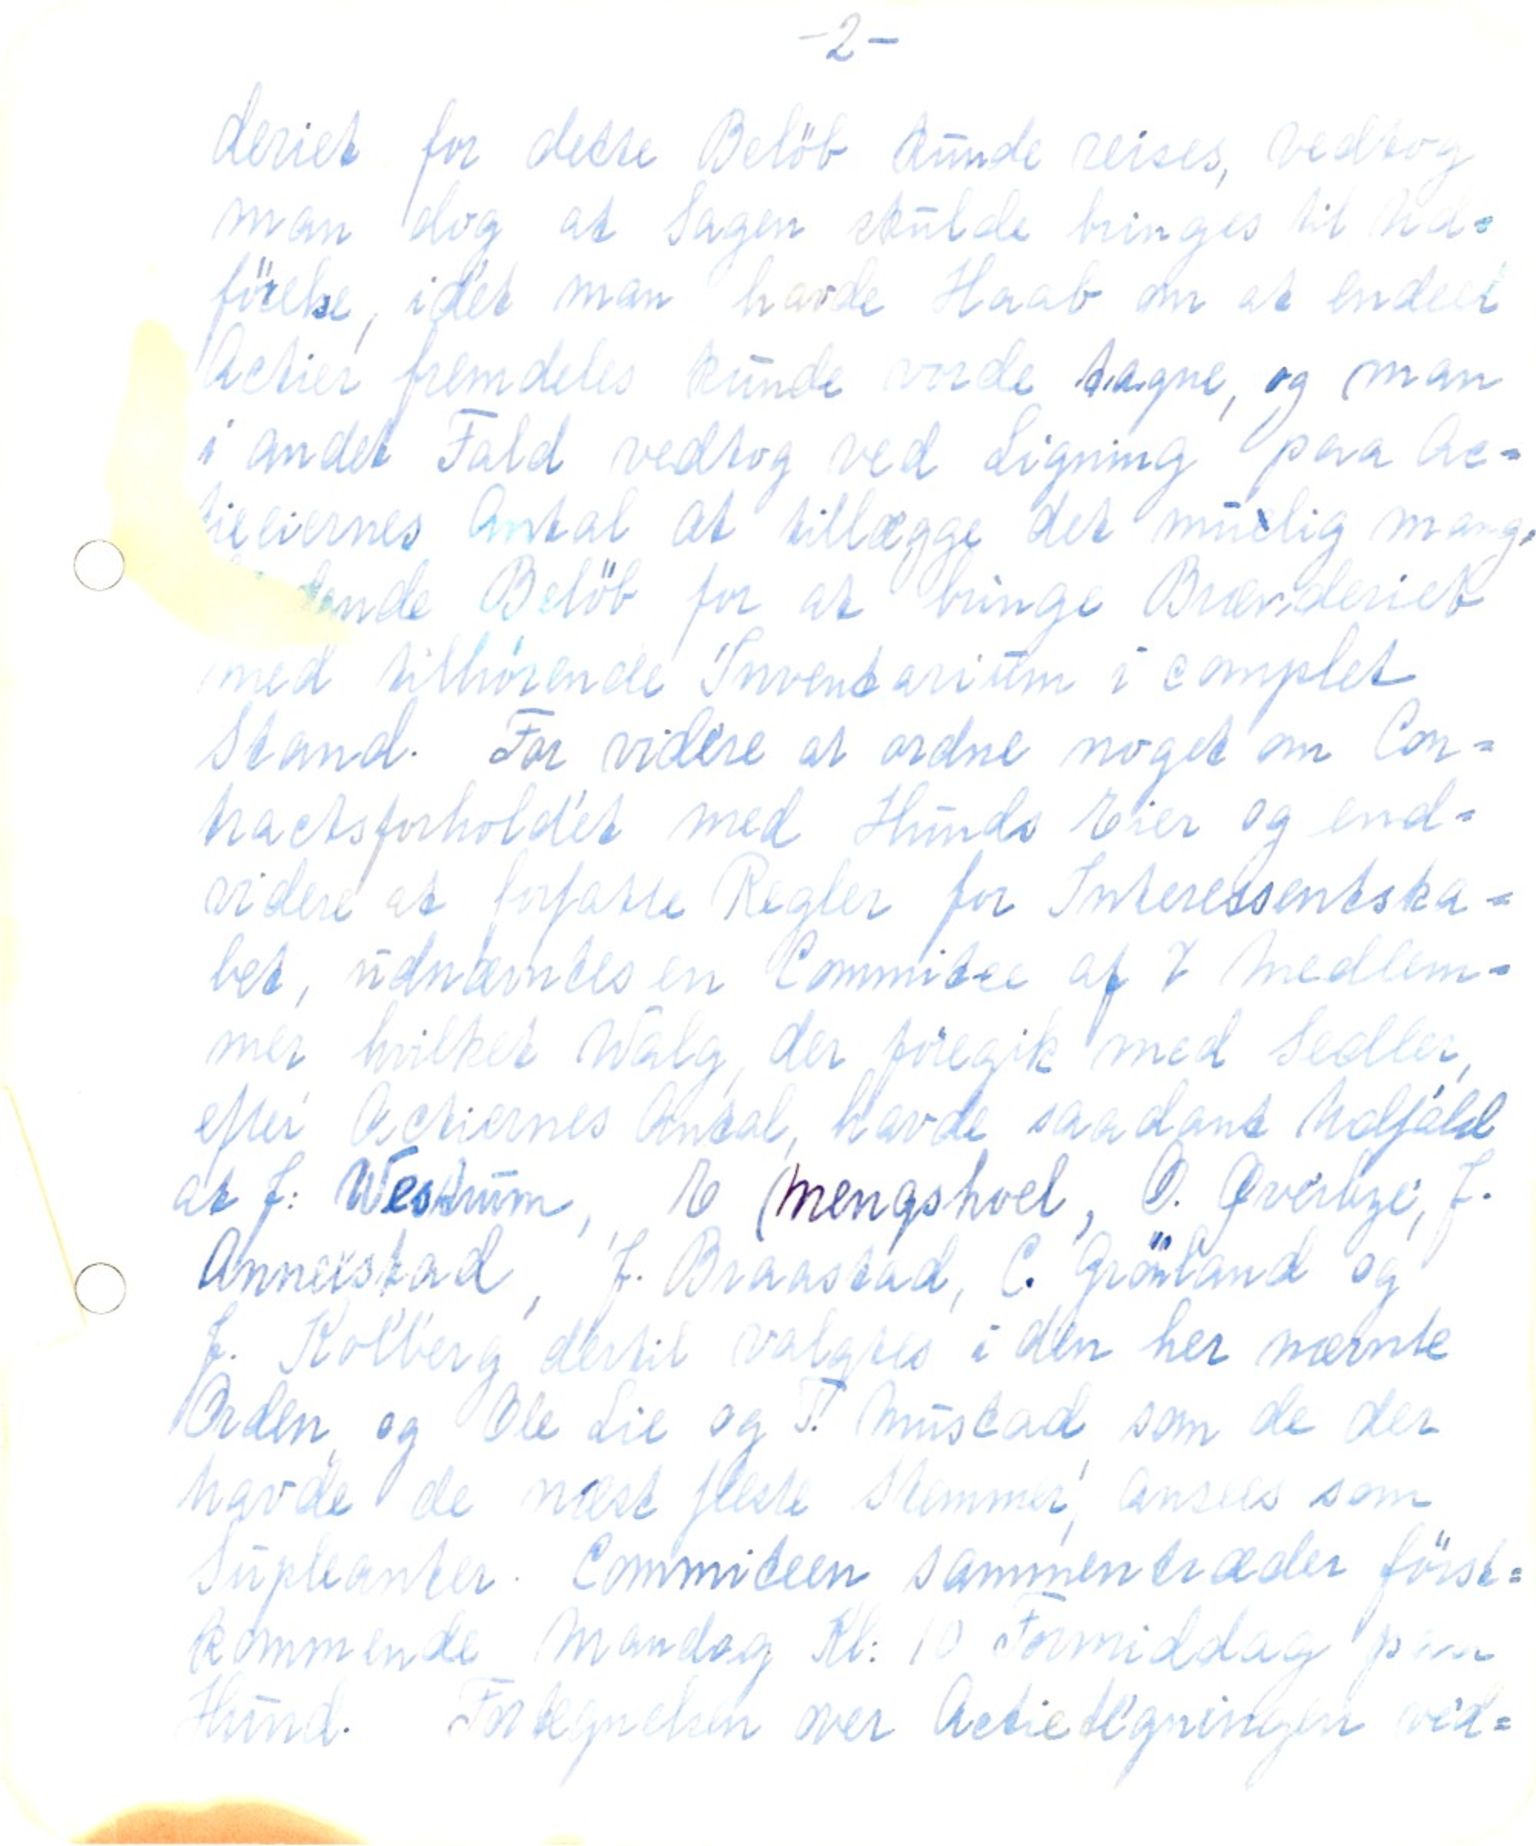 -2-
deriet for dette Belöb kunde reises, vedtog
man dog at Sagen skulde bringes til Ud=
förelse, idet man havde Haab om at endeel
Actier fremdeles kunde vorde tagne, og man
i andet Fald vedtog ved Ligning paa Ac=
tieeiernes Antal at tillægge det muelig mang=
lende Belöb for at bringe Brænderiet
med tilhörende Inventarium i complet
Stand. For videre at ordne noget om Con=
tractsforholdet med Hunds Eier og end=
videre at forfatte Regler for Interessentska=
bet, udnævntes en Committee af 7 Medlem=
mer hvilket Valg, der foregik med Sedler,
efter Actiernes Antal, havde saadant Udfald
at J: Westrum, E Mengshoel, O. Øverbye, J.
Annexstad, J. Braastad, C. Grönland og
J. Kolberg dertil valgtes i den her nævnte
Orden, og Ole Lie og T. Mustad som de der
havde de næst fleste Stemmer, ansees som
Supleanter. Committeen sammentræder först=
kommende Mandag Kl: 10 Formiddag paa
Hund. Fortegnelsen over Actietegningen ved=